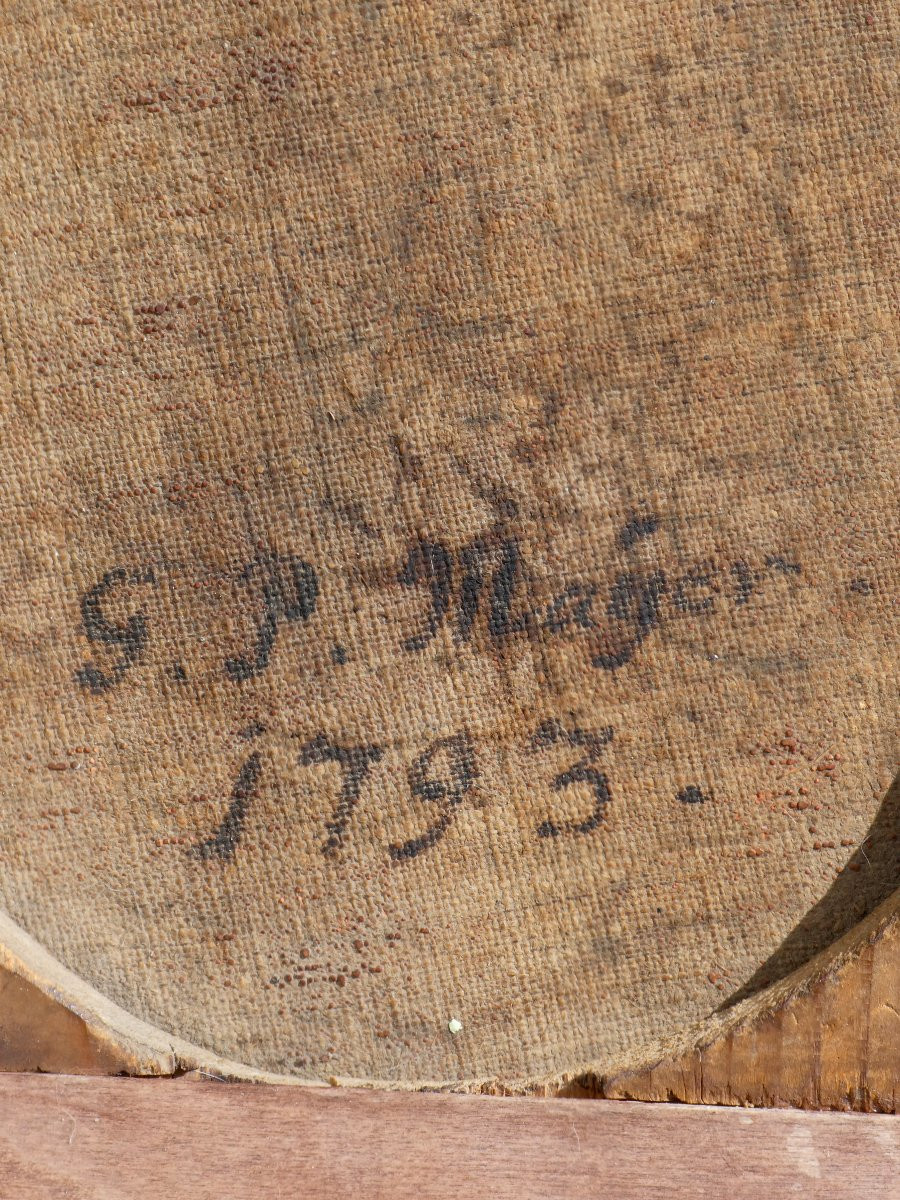 G. P. Maÿer.
1793.